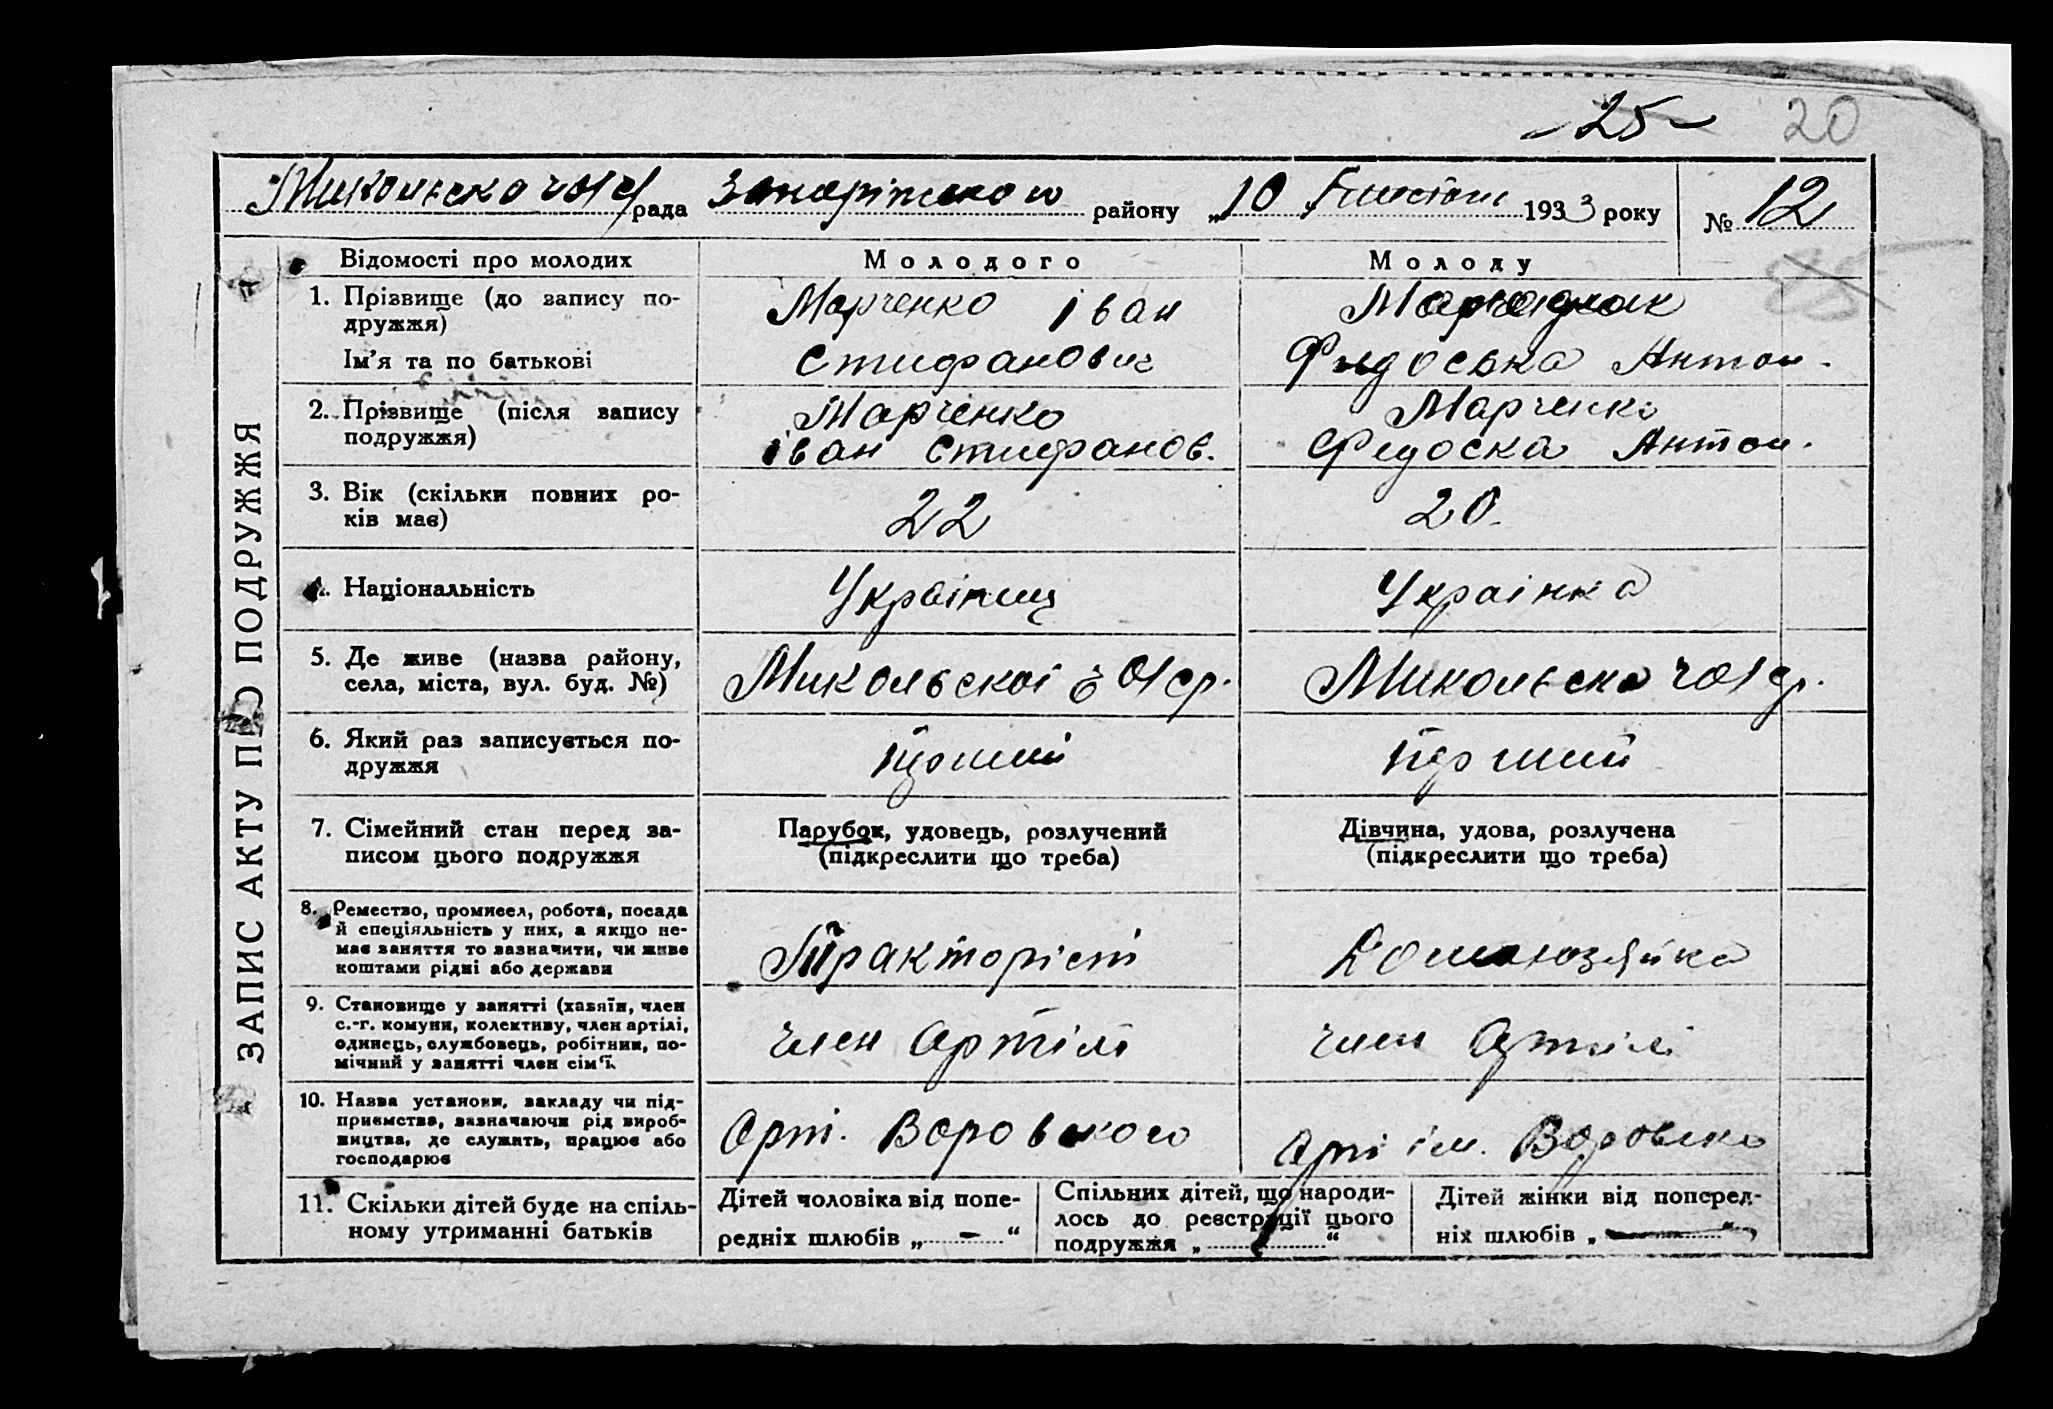 - 25 - 20
рада району „10 1933 року № 12
ЗАПИС АКТУ ПРО ПОДРУЖЖЯ
Відомості про молодих Молодого Молоду
1. Прізвище (до запису по-
дружжя)
Ім’я та по батькові
Марченко Іван
Стифанович
Федоська Антон.
2. Прізвище (після запису
подружжя)
Марченко
Іван Стифанов.
Марченко
Федоска Антон.
3. Вік (скільки повних ро-
ків має)
22
20.
4. Національність
Українц
Українка
5. Де живе (назва району,
села, міста, вул. буд. №)
Микольскоі
Микольско
6. Який раз записується по-
дружжя
перший
перший
7. Сімейний стан перед за-
писом цього подружжя
Парубок, удовець, розлучений
(підкреслити що треба)
Дівчина, удова, розлучена
(підкреслити що треба)
8. Ремество, промисел, робота, посада
й спеціяльність у них, а якщо не-
має заняття то зазначити, чи живе
коштами рідні або держави
Тракторіст
Домохозяйка
9. Становище у занятті (хазяїн, член
с.-г. комуни, колективу, член артілі,
одинець, службовець, робітник, по-
мічний у занятті член сім’ї.
член артілі
член артілі
10. Назва установи, закладу чи під-
приємства, зазначаючи рід вироб-
ництва, де служить, працює або
господарює
Арт. Воровского
Арт ім. Воровско
11. Скільки дітей буде на спіль-
ному утриманні батьків
Дітей чоловіка від попе-
редніх шлюбів „ - “
Спільних дітей, що народи-
лось до реєстрації цього
подружжя „ “
Дітей жінки від поперед-
ніх шлюбів „ — “